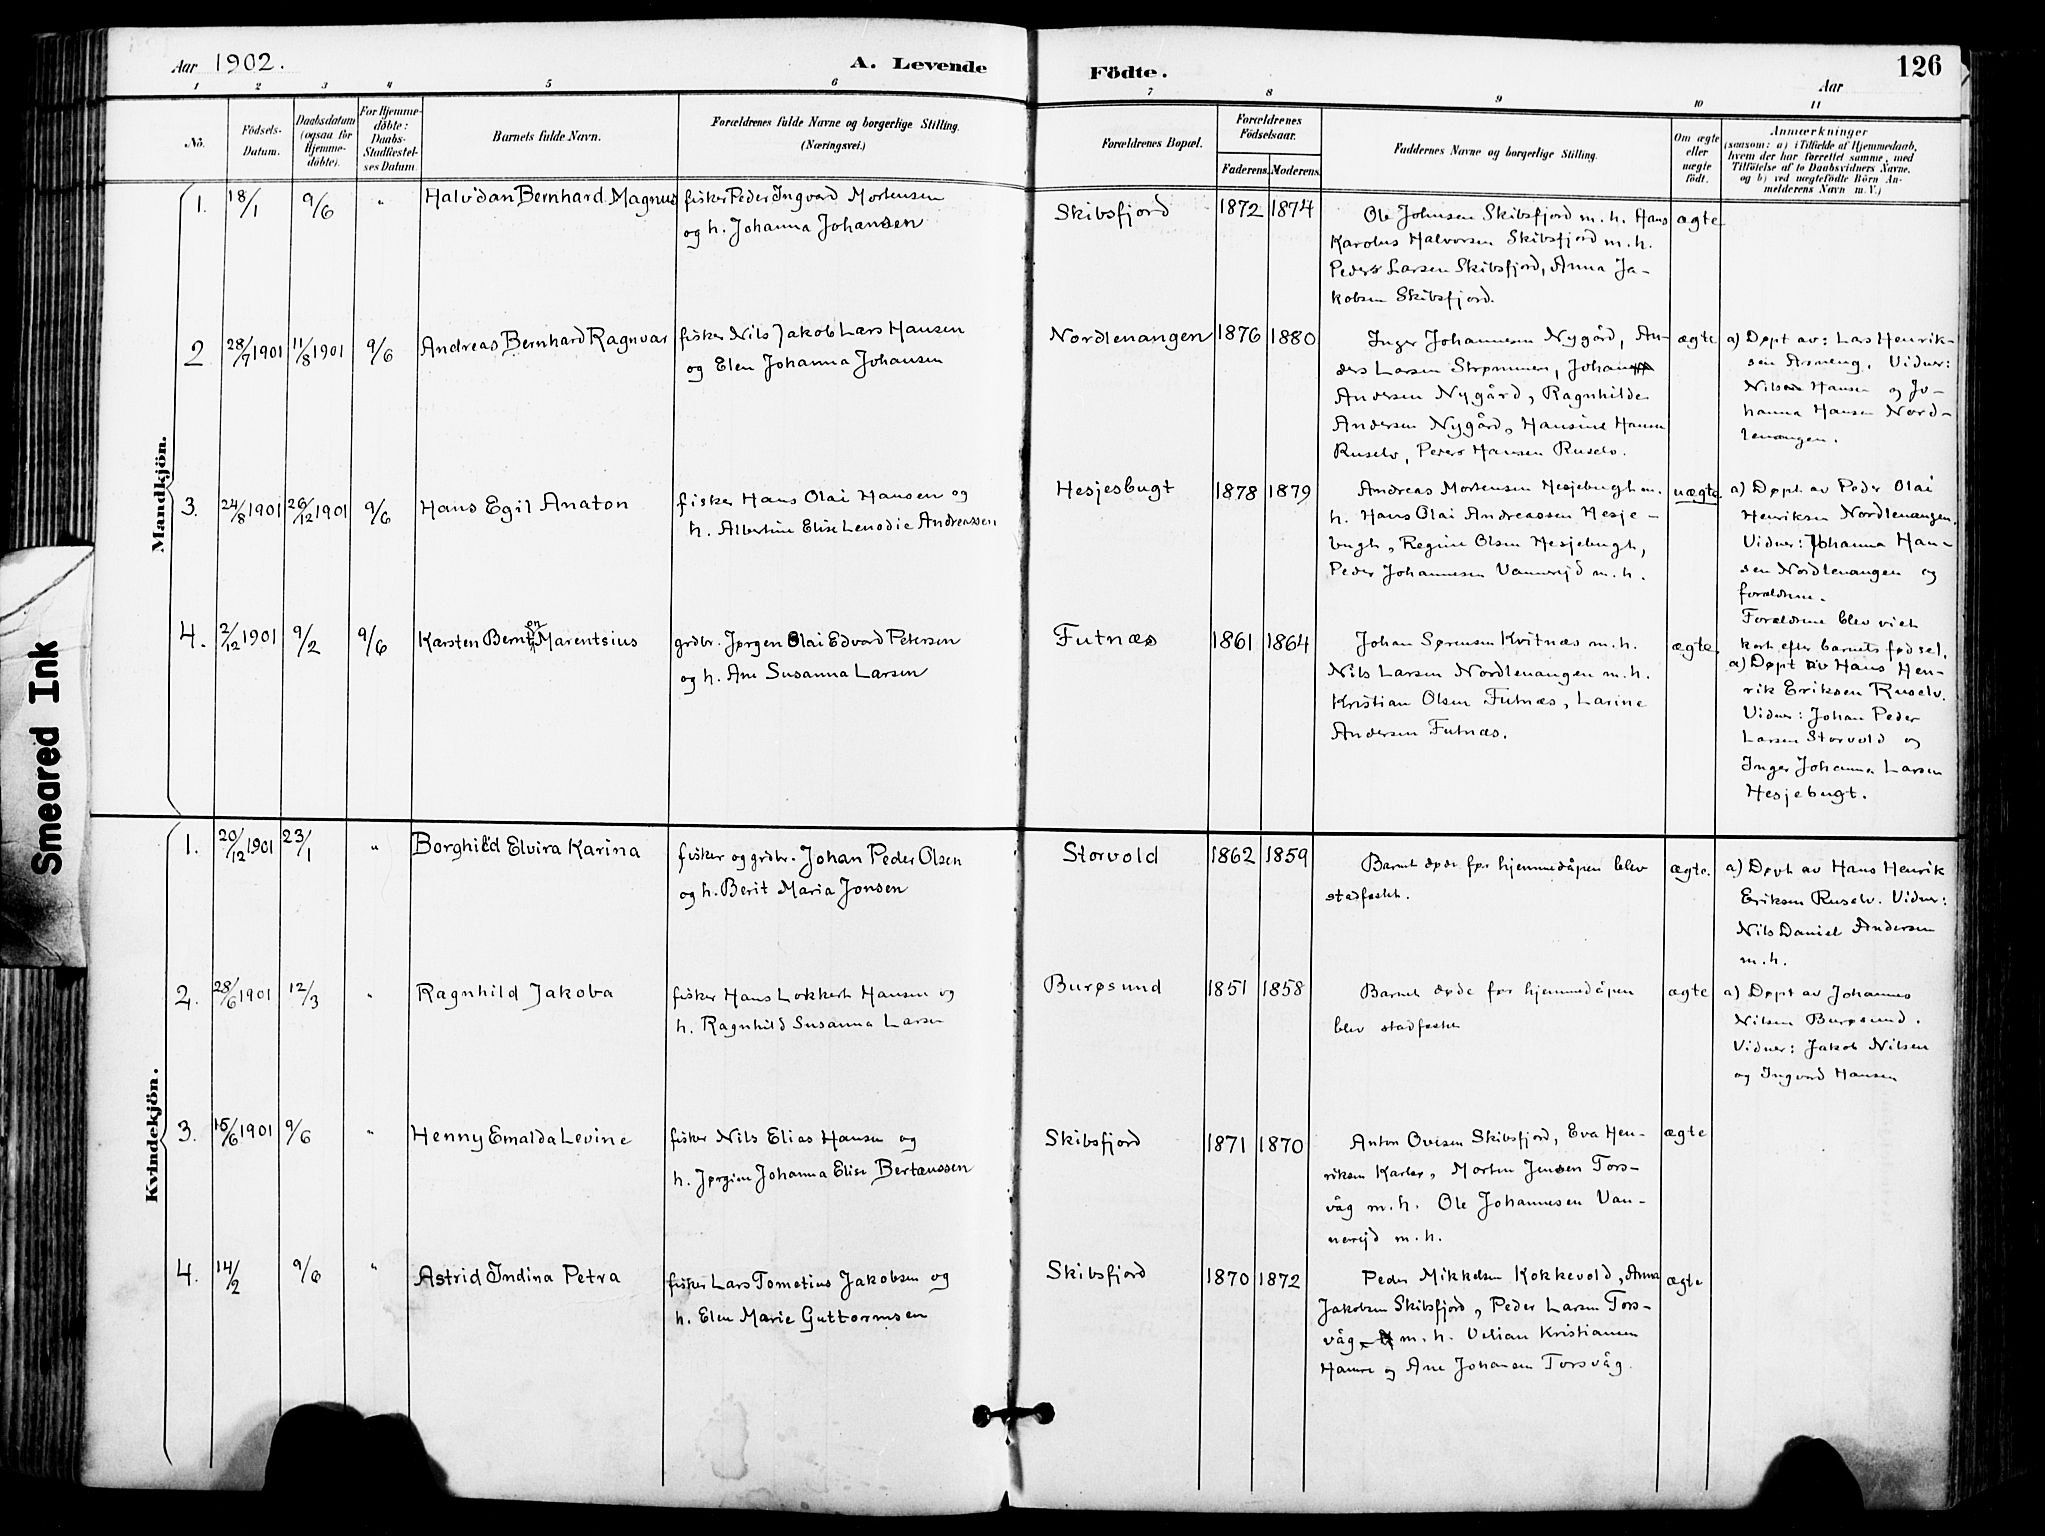 Aar 1902.
A. Levende
Födte.
Aar
126
1 2 3 4 5 6 7 8 9 10 11
No.
Födsels-
Datum.
Daabsdatum
(ogsaa for
Hjemme-
döbte).
For Hjemme-
döbte:
Daabs-
Stadfæstel-
ses Datum.
Barnets fulde Navn.
Forældrenes fulde Navne og borgerlige Stilling.
(Næringsvei.)
Forældrenes Bopæl.
Forældrenes
Födselsaar.
Faderens. Moderens.
Faddernes Navne og borgerlige Stilling.
Om ægte
eller
uægte
födt.
Anmærkninger
(saasom: a) i Tilfælde af Hjemmedaab,
hvem der har forrettet samme, med
Tilföielse af to Daabsvidners Navne,
og b) ved uægtefödte Börn An-
melderens Navn m. V.)
Mandkjön.
1. 18/1 9/6 "
Halvdan Bernhard Magnus
fisker Peder Ingvard Mortensen
og h. Johanna Johansen
Skibsfjord
1872 1874
Ole Johnsen Skibsfjord m. h. Hans
Karolus Halvorsen Skibsfjord m. h.
Peder Larsen Skibsfjord, Anna Ja-
kobsen Skibsfjord.
ægte
2 28/7 1901 11/8 1901 9/6
Andreas Bernhard Ragnvar
fisker Nils Jakob Lars Hansen
og Elen Johanna Johansen
Nordlenangen
1876 1880
Inger Johannesen Nygård, An-
ders Larsen Strømmen, Johan
Andersen Nygård, Ragnhilde
Andersen Nygård, Hansine Hansen
Ruselv, Peder Hansen Ruselv.
ægte
a) Døpt av: Lars Henrik-
sen Arøneng. Vidner:
Nils Hansen og Jo-
hanna Hansen Nord-
lenangen.
3. 24/8 1901 26/12 1901 9/6
Hans Egil Anaton
fisker Hans Olai Hansen og
h. Albertine Elise Lenodie Andreassen
Hesjesbugt
1878 1879
Andreas Mortensen Hesjebugt m.
h. Hans Olai Andreassen Hesje-
bugt, Regine Olsen Hesjebugt,
Peder Johannesen Vannereid m. h.
uægte
a) Døpt av Peder Olai
Henriksen Nordlenangen.
Vidner: Johanna Han-
sen Nordlenangen og
forældrene.
Forældrene blev viet
kort efter barnets fødsel.
4. 2/12 1901 9/2 9/6
Karsten Bernt on Marentsius
grdbr. Jørgen Olai Edvard Petersen
og h. Ane Susanna Larsen
Futnæs
1861 1864
Johan Sørensen Kvitnæs m. h.
Nils Larsen Nordlenangen m. h.
Kristian Olsen Futnæs, Larine
Andersen Futnæs.
ægte
a) Døpt av Hans Hen-
rik Eriksen Ruselv.
Vidner: Johan Peder
Larsen Storvold og
Inger Johanna Larsen
Hesjebugt.
Kvindekjön.
1. 20/12 1901 23/1 "
Borghild Elvira Karina
fisker og grdbr. Johan Peder Olsen
og h. Berit Maria Jonsen
Storvold
1862 1859
Barnet døde før hjemmedåpen blev
stadfestet.
ægte.
a) Døpt av Hans Henrik
Eriksen Ruselv. Vidner:
Nils Daniel Andersen
m. h.
2. 28/6 1901 12/3 "
Ragnhild Jakoba
fisker Hans Lokkert Hansen og
h. Ragnhild Susanna Larsen
Burøsund
1851 1858
Barnet døde før hjemmedåpen
blev stadfestet
ægte
a) Døpt av Johannes
Nilsen Burøsund.
Vidner: Jakob Nilsen
og Ingvard Hansen
3. 15/6 1901 9/6 "
Henny Emalda Levine
fisker Nils Elias Hansen og
h. Jørgine Johanna Elise Bertaussen
Skibsfjord
1871 1870
Anton Ovesen Skibsfjord, Eva Hen-
riksen Karlsø, Morten Jensen Tors-
våg m. h. Ole Johannesen Van-
nereid m. h.
ægte
4. 14/2 9/6 "
Astrid Indina Petra
fisker Lars Tometius Jakobsen og
h. Elen Marie Guttormsen
Skibsfjord
1870 1872
Peder Mikkelsen Kokkevold, Anna
Jakobsen Skibsfjord, Peder Larsen Tors-
våg m. h. Velian Kristiansen
Hamre og Ane Johansen Torsvåg.
ægte
Smeared Ink